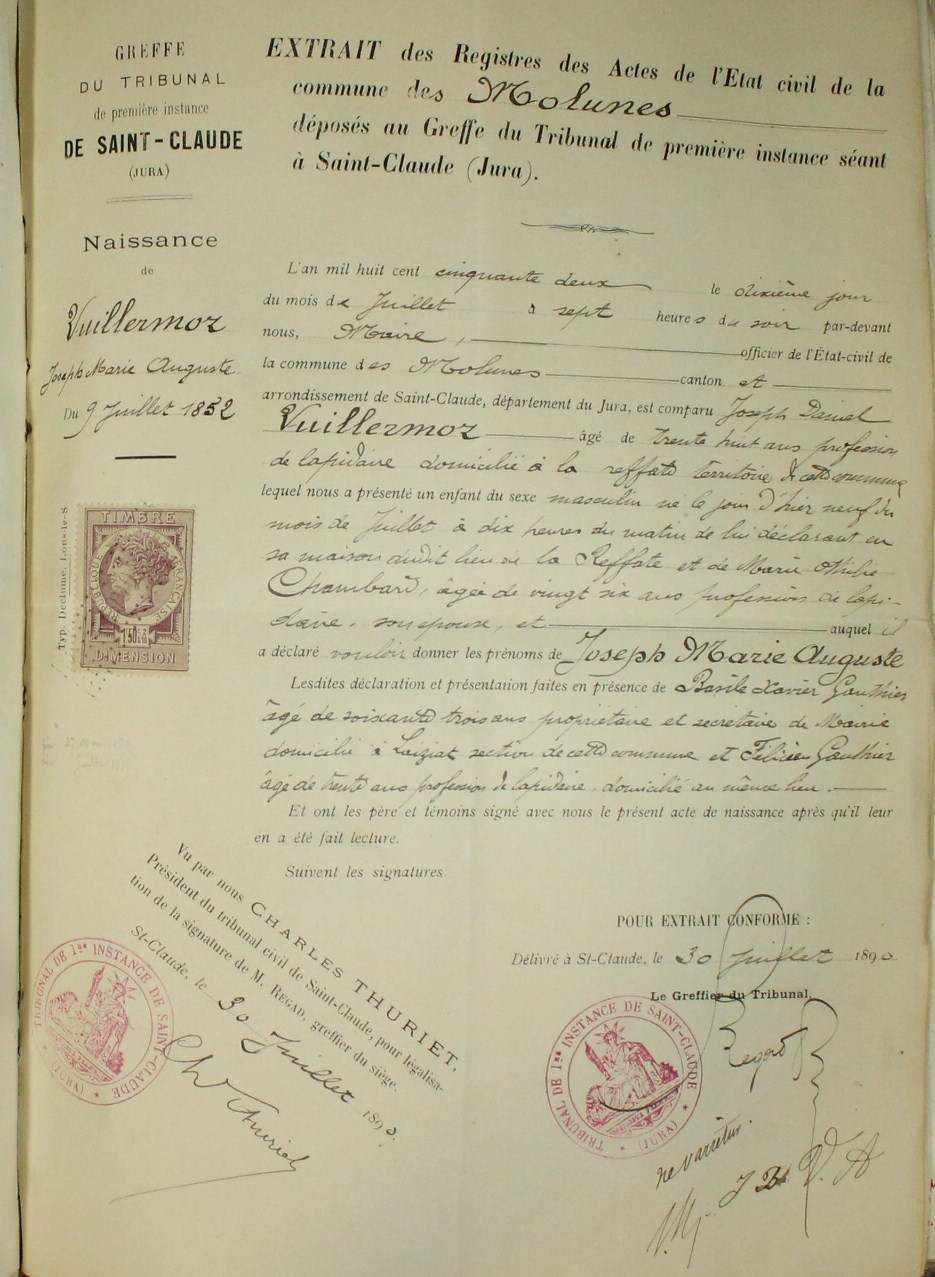 GREFFE
DU TRIBUNAL
de première instance
DE SAINT-CLAUDE
(JURA)
Naissance
de
Vuillermoz
Joseph Marie Auguste
Du 9 Juillet 1852
Typ. Declume, Lons-le-S
TIMBRE
RÉPUBLIQUE FRANÇAISE
DIMENSION
EXTRAIT des Registres des Actes de l'Etat civil de la
commune des Molunes
déposés au Greffe du Tribunal de première instance séant
à Saint-Claude (Jura).
L'an mil huit cent cinquante deux le dixième jour
du mois de Juillet à sept heures du soir par-devant
nous, Maire, officier de l'État-civil de
la commune des Molunes canton et
arrondissement de Saint-Claude, département du Jura, est comparu Joseph Daniel
Vuillermoz âgé de trente huit ans profession
de lapidaire domicilié à la reffate territoire de cette commune
lequel nous a présenté un enfant du sexe masculin né le jour d'hier neuf du
mois de Juillet à dix heures du matin de lui déclarant en
sa maison audit lieu de la Reffate et de Marie Othilie
Chambard, âgée de vingt six ans profession de lapi-
daire, son épouse, et auquel il
a déclaré vouloir donner les prénoms de Joseph Marie Auguste
Lesdites déclaration et présentation faites en présence de Basile Xavier Gauthier
âgé de soixante trois ans propriétaire et secretaire de Mairie
domicilié à section de cette commune et Félicien Gauthier
âgé de trente ans profession de lapidaire domicilié au même lieu.
Et ont les père et témoins signé avec nous le présent acte de naissance après qu'il leur
en a été fait lecture.
Suivent les signatures
Vu par nous CHARLES THURIET,
Président du tribunal civil de Saint-Claude, pour légalisa-
tion de la signature de M. REGAD, greffier du siège.
St-Claude, le 30 Juillet 1890.
Ch Thuriet
TRIBUNAL DE 1re INSTANCE DE SAINT-CLAUDE
(JURA)
POUR EXTRAIT CONFORME :
Délivré à St-Claude, le 30 Juillet 1890
Le Greffier du Tribunal,
Regad
TRIBUNAL DE 1re INSTANCE DE SAINT-CLAUDE
(JURA)
ne varietur.